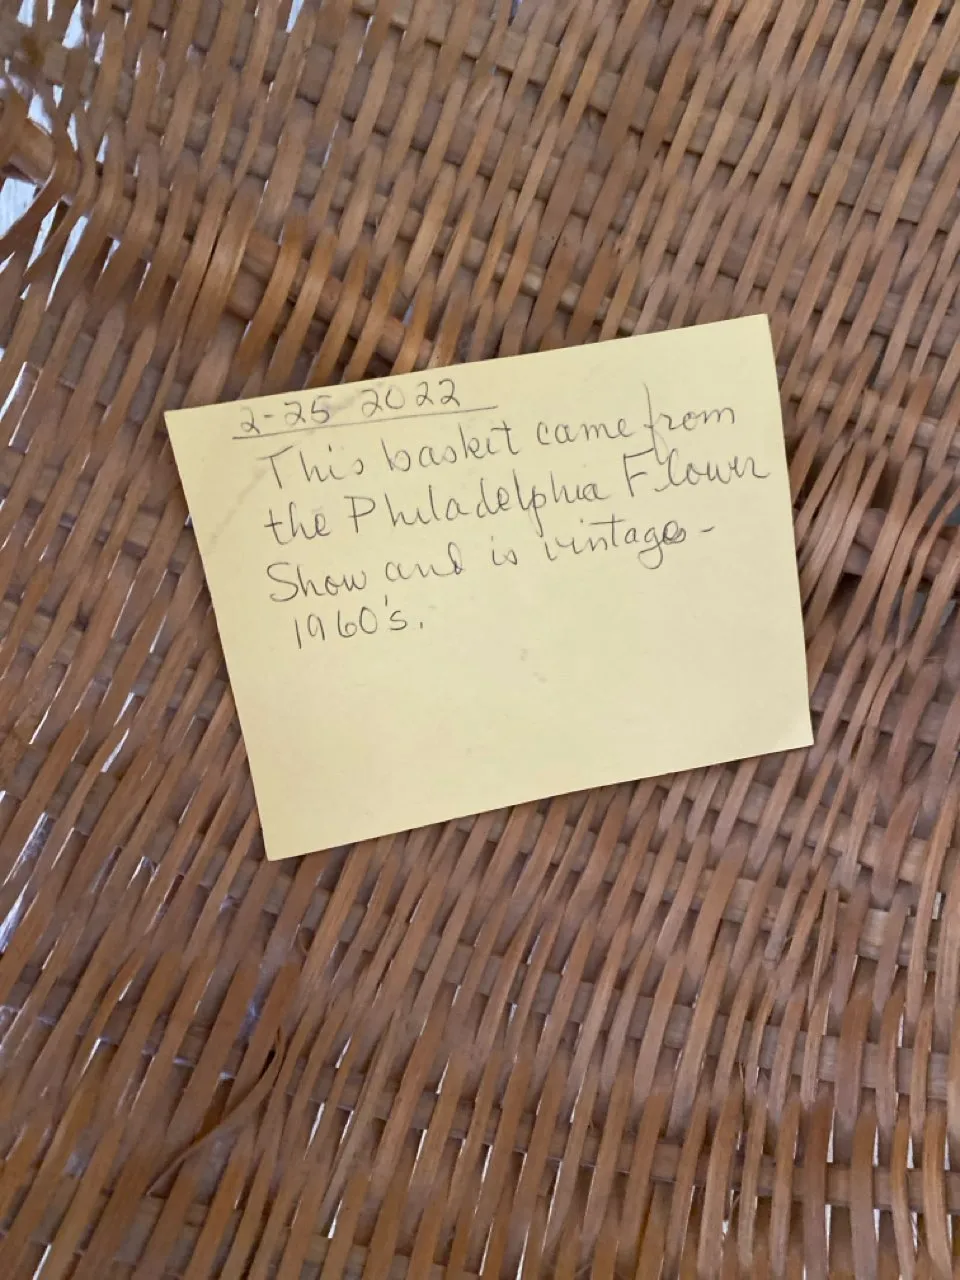 2-25 2022
This basket came from
the Philadelphia Flower
Show and is vintage -
1960's.